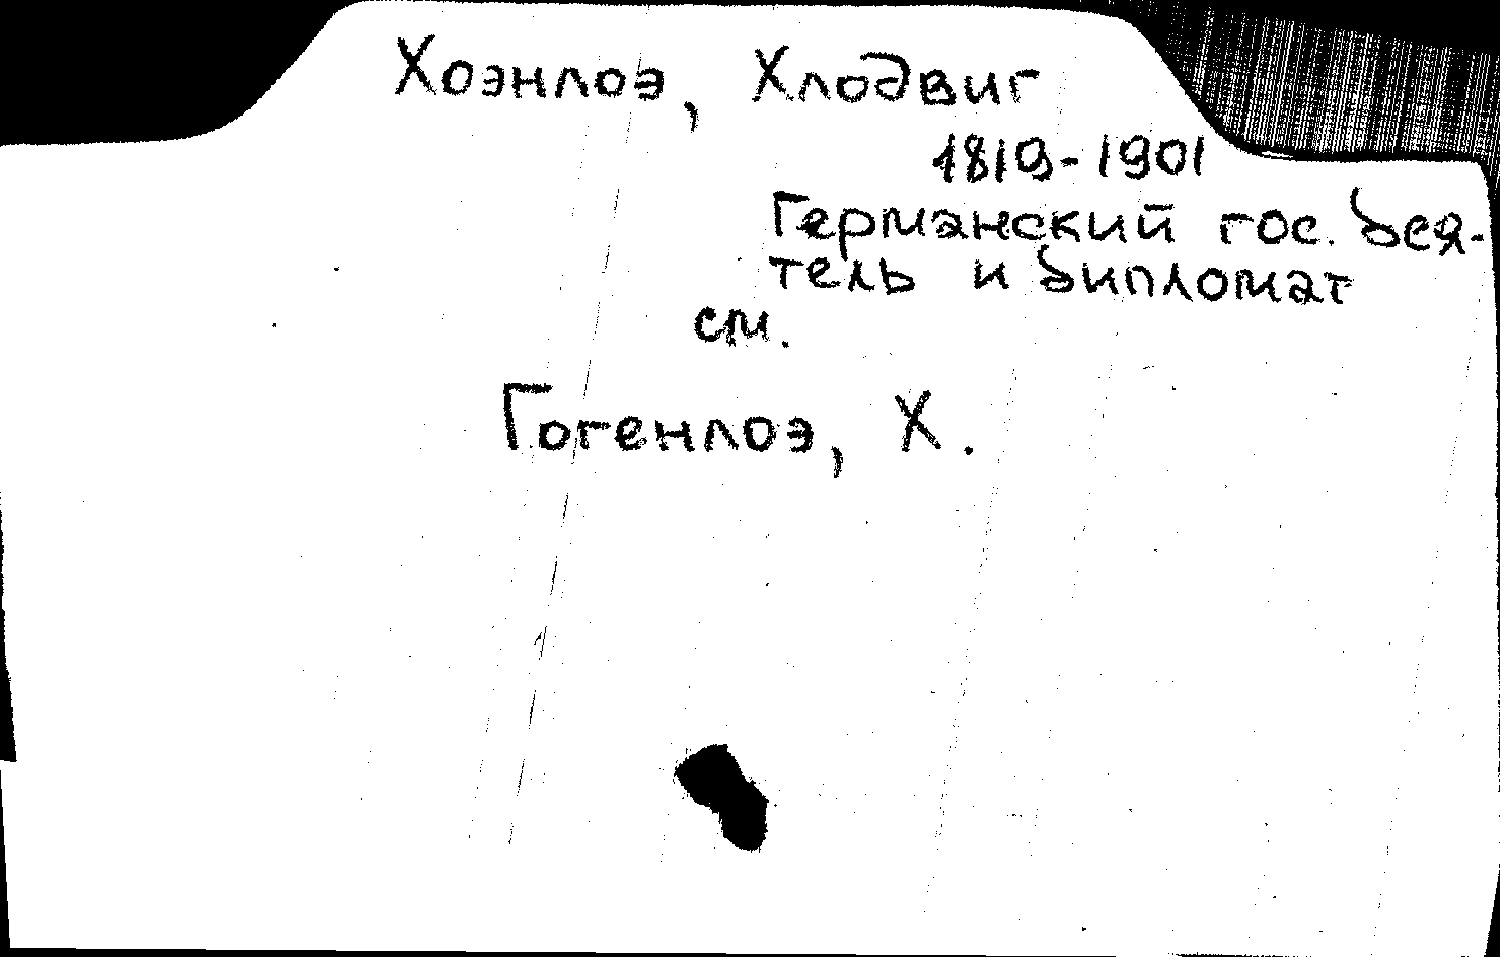 Хоэнлоэ, Хлодвиг
1819-1901
Германский гос. дея-
тель и дипломат
см.
Гогенлоэ, Х.